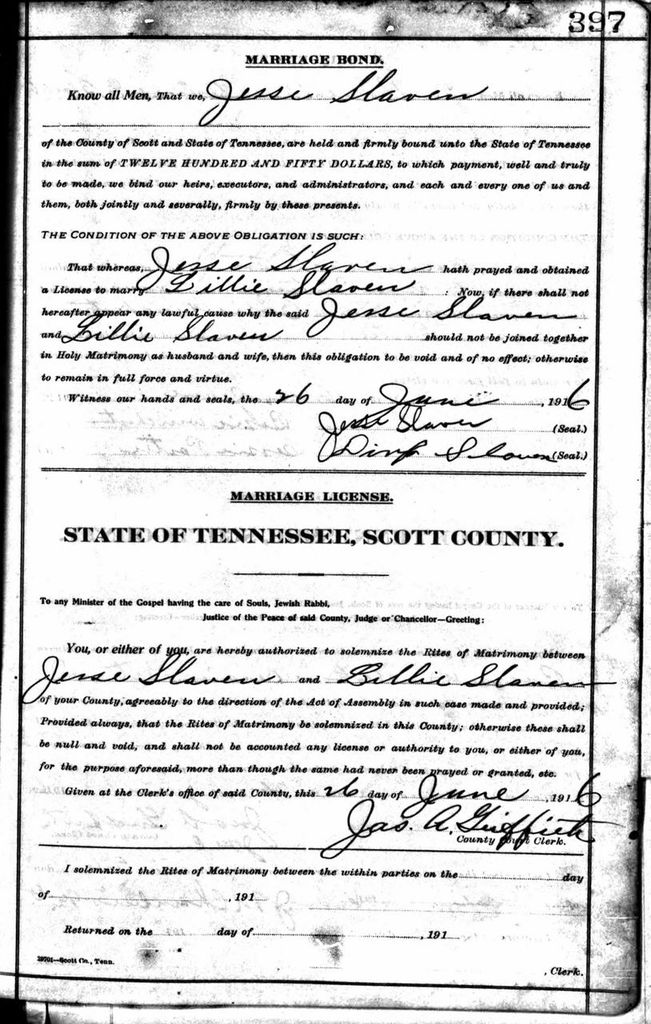 397
MARRIAGE BOND.
Know all Men, That we, Jesse Slaven
of the County of Scott and State of Tennessee, are held and firmly bound unto the State of Tennessee
in the sum of TWELVE HUNDRED AND FIFTY DOLLARS, to which payment, well and truly
to be made, we bind our heirs, executors, and administrators, and each and every one of us and
them, both jointly and severally, firmly by these presents.
THE CONDITION OF THE ABOVE OBLIGATION IS SUCH:
That whereas, Jesse Slaven hath prayed and obtained
a License to marry Lillie Slaven : Now, if there shall not
hereafter appear any lawful cause why the said Jesse Slaven
and Lillie Slaven should not be joined together
in Holy Matrimony as husband and wife, then this obligation to be void and of no effect; otherwise
to remain in full force and virtue.
Witness our hands and seals, the 26 day of June, 1916
Jesse Slaven (Seal.)
Slaven (Seal.)
MARRIAGE LICENSE.
STATE OF TENNESSEE, SCOTT COUNTY.
To any Minister of the Gospel having the care of Souls, Jewish Rabbi,
Justice of the Peace of said County, Judge or Chancellor—Greeting:
You, or either of you, are hereby authorized to solemnize the Rites of Matrimony between
Jesse Slaven and Lillie Slaven
of your County, agreeably to the direction of the Act of Assembly in such case made and provided;
Provided always, that the Rites of Matrimony be solemnized in this County; otherwise these shall
be null and void, and shall not be accounted any license or authority to you, or either of you,
for the purpose aforesaid, more than though the same had never been prayed or granted, etc.
Given at the Clerk's office of said County, this 26 day of June, 1916
Jas. A. Griffith
County Court Clerk.
I solemnized the Rites of Matrimony between the within parties on the day
of , 191
Returned on the day of , 191
—Scott Co., Tenn.
, Clerk.